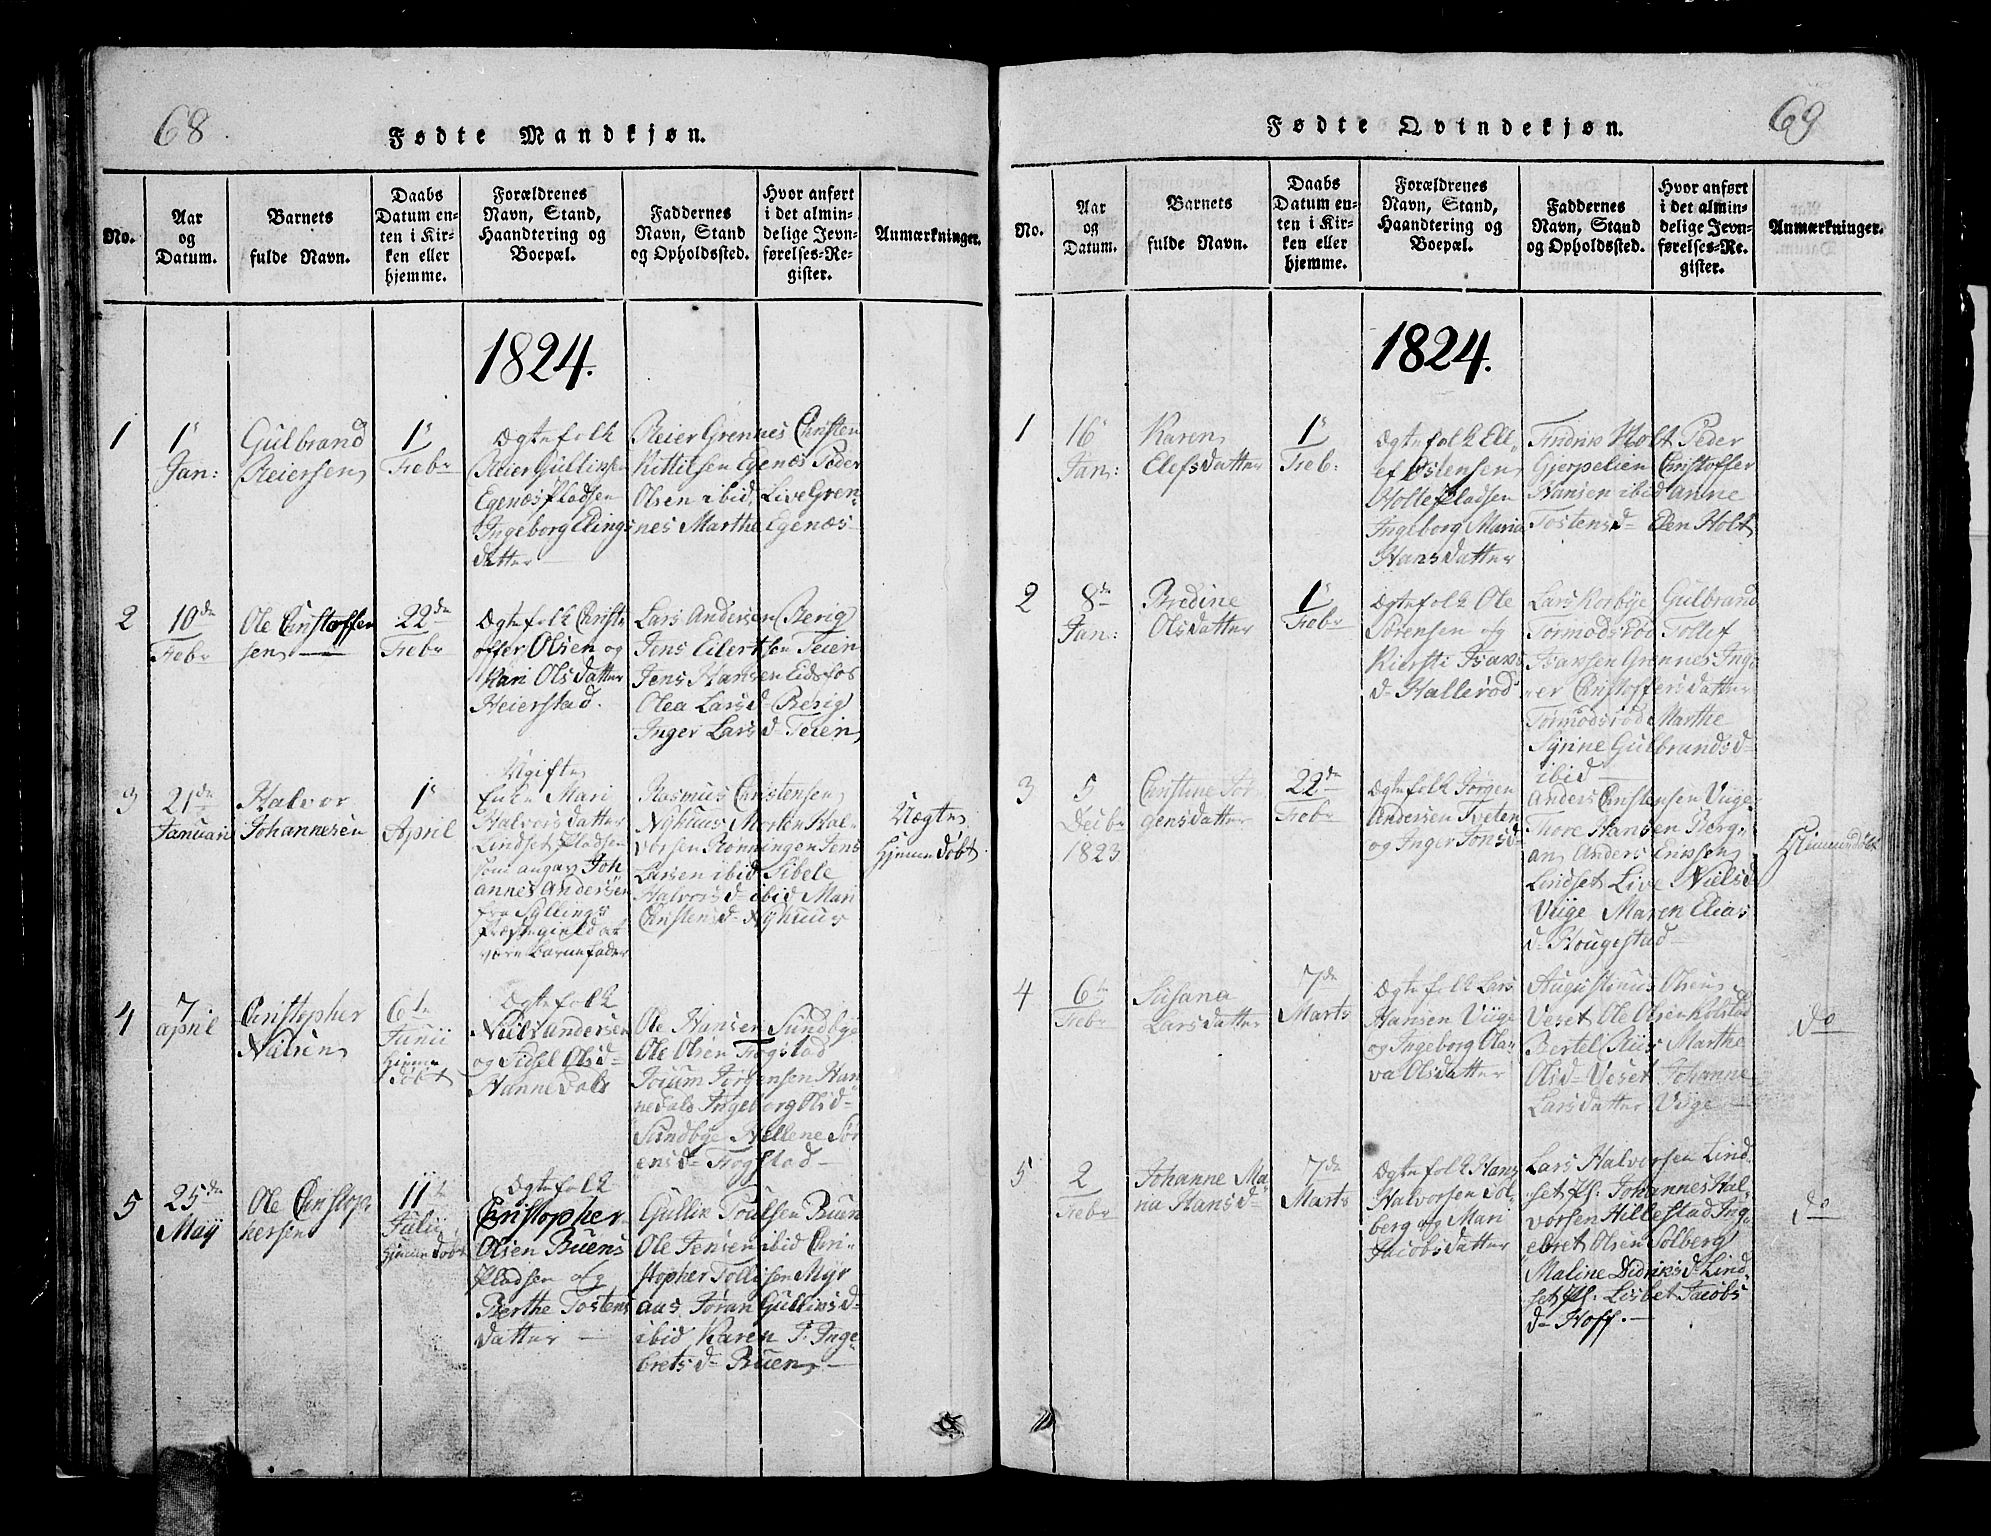 68
Fødte Mandkjøn.
No.
Aar
og
Datum.
Barnets
fulde Navn.
Daabs
Datum en-
ten i Kir-
ken eller
hjemme.
Forældrenes
Navn, Stand,
Haandtering og
Boepæl.
Faddernes
Navn, Stand
og Opholdssted.
Hvor anført
i det almin-
delige Jevn-
førelses-Re-
gister.
Anmærkninger.
1824.
1
1ˢ
Jan:
Gulbrand
Reiersen
1ˢ
Febr
Ægtefolk
Reier Gullixsen
Egenæs Pladsen
Ingeborg Elings
datter
Reier Grennes Christen
Kittilsen Egenæs Peder
Olsen ibid, Live Gren-
nes Marthe Egenæs
2
10de
Febr
Ole Christoffer
sen
22de
Febr
Ægtefolk Christ-
offer Olsen og
Kari Olsdatter
Heierstad.
Lars Andersen Berig
Jens Eilertsen Teien
Jens Hansen Eidsfos
Olea Larsd Berig
Inger Larsd Teien
3
21de
Januari
Halvor
Johannesen
1ˢ
April
Ugifte
Mari
Halvorsdatter
Lindset Pladsen
som angav Joh
annes Andersen
fra Syllings
Præstegield at
være Barnefader
Rasmus Christensen
Nyhuus Morten Hal-
vorsen Rønningen Jens
Larsen ibid Sibele
Halvorsd ibid Mari
Christensd Nyhuus
Uægte
Hjemmedøbt
4
7
April
Christopher
Nilsen
6te
Junii
Hjemme
døbt
Ægtefolk
Niels Andersen
og Sidsel Olsd
Hannedals
Ole Hansen Sundbye
Ole Olsen Frogstad
Joium Jørgensen Han
nedals Ingeborg Olsd
Sundbye Hellene Sør
ensd Frogstad
5
25de
Maij
Ole Christop-
hersen
11te
Julii
Hjemmedøbt
Ægtefolk
Christopher
Olsen Buens
Pladsen og
Berthe Tostens
datter
Gullik Poulsen Buen
Ole Jensen ibid Chri-
stopher Tollefsen Myr
aas Jøran Gulliksd
ibid Karen P. Inge-
bretsd Buen
69
Fødte Qvindekjøn.
No.
Aar
og
Datum.
Barnets
fulde Navn.
Daabs
Datum en-
ten i Kir-
ken eller
hjemme.
Forældrenes
Navn, Stand,
Haandtering og
Boepæl.
Faddernes
Navn, Stand
og Opholdssted.
Hvor anført
i det almin-
delige Jevn-
førelses-Re-
gister.
Anmærkninger.
1824.
1
16
Jan:
Karen
Elefsdatter
1ˢ
Feb:
Ægtefolk Ell-
ef Østensen
Holtepladsen
Ingeborg Maria
Hansdatter
Fredrik Holt Peder
Gjerpelien Christoffer
Hansen ibid Anne
Tostensd Elen Holt
2
8de
Jan:
Bredine
Olsdatter
1ˢ
Febr
Ægtefolk Ole
Sørensen og
Kiersti Isaks
d Hallerød
Lars Korbye Gulbrand
Tormodsrød Tollef
Isansen Grennes Ing-
er Christoffersdatter
Tormodsrød Marthe
Syrine Gulbrandsd
ibid
3
5
Decbr
1823
Christine Jør-
gensdatter
22de
Febr
Ægtefolk Jørgen
Andersen Tveten
og Inger Jonsd
Anders Christensen Viige
Thore Hansen Berg-
an Anders Erichsen
Lindset Live Nielsd
Viige Maren Elias
d Hougestad
Hiemmedøbt
4
6te
Febr
Susana
Larsdatter
7de
Marts
Ægtefolk Lars
Hansen Viige
og Ingeborg Ola-
va Olsdatter
Augustinus Olsen
Veset Ole Olsen Kolstad
Bertel Riis Marthe
Olsd Veset Johanne
Larsdatter Viige
do
5
2
Febr
Johanne Ma-
na Hansd
7de
Marts
Ægtefolk Hans
Halvorsen Sol-
berg og Mari
Jacobsdatter
Lars Halvorsen Lind
set Pl. Johannes Hal-
vorsen Hillestad Ing-
ebret Olsen Solberg
Maline Didriksd Lind
set Pl. Lisbet Jacobs
d Hoff.
do